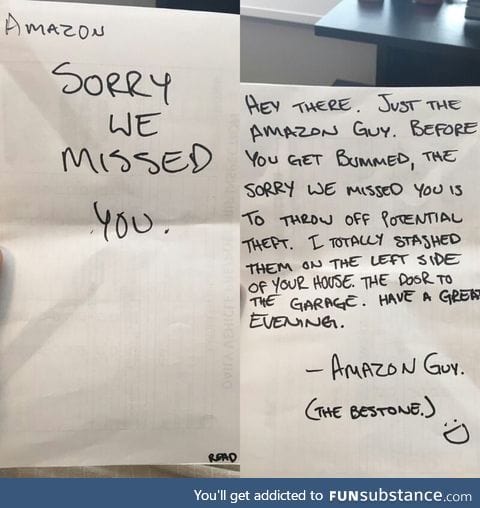 AMAZON
SORRY
WE
MISSED
YOU.
READ
HEY THERE. JUST THE
AMAZON GUY. BEFORE
YOU GET BUMMED, THE
SORRY WE MISSED YOU IS
TO THROW OFF POTENTIAL
THEFT. I TOTALLY STASHED
THEM ON THE LEFT SIDE
OF YOUR HOUSE. THE DOOR TO
THE GARAGE. HAVE A GREAT
EVENING.
– AMAZON GUY.
(THE BESTONE.)
You'll get addicted to FUNsubstance.com